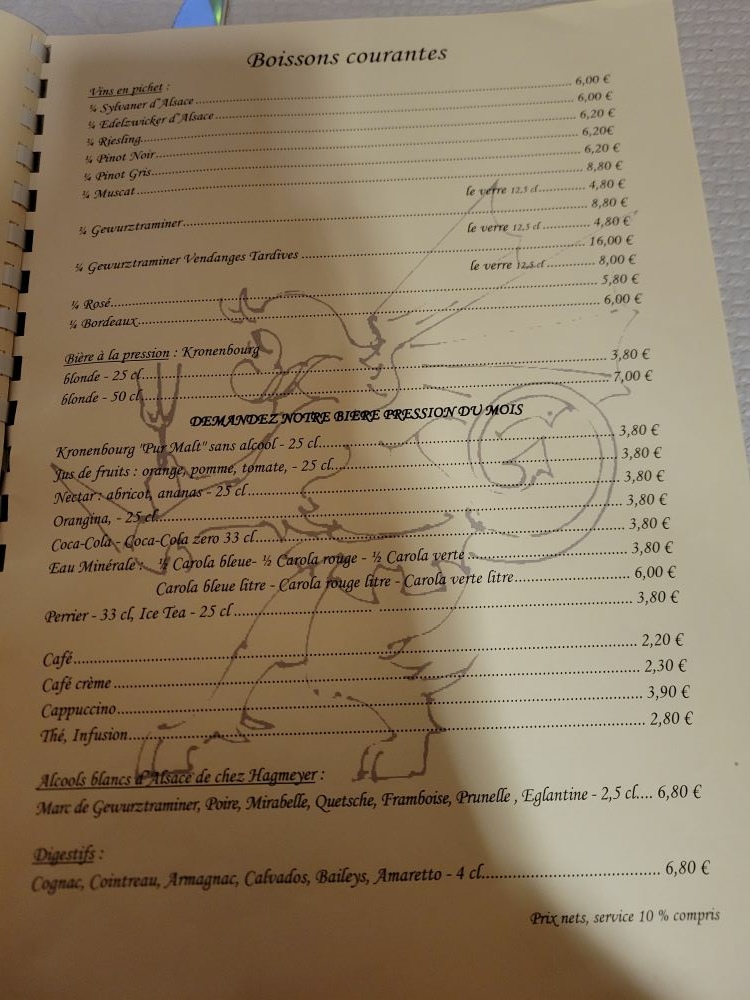 Boissons courantes
Vins en pichet :
¼ Sylvaner d'Alsace ........ 6,00 €
¼ Edelzwicker d'Alsace ........ 6,00 €
¼ Riesling........ 6,20 €
¼ Pinot Noir........ 6,20€
¼ Pinot Gris........ 6,20 €
¼ Muscat ........ 8,80 €
le verre 12,5 cl........ 4,80 €
¼ Gewurztraminer........ 8,80 €
le verre 12,5 cl........ 4,80 €
¼ Gewurztraminer Vendanges Tardives ........ 16,00 €
le verre 12,5 cl ........ 8,00 €
¼ Rosé........ 5,80 €
¼ Bordeaux........ 6,00 €
Bière à la pression : Kronenbourg
blonde - 25 cl........ 3,80 €
blonde - 50 cl........ 7,00 €
DEMANDEZ NOTRE BIERE PRESSION DU MOIS
Kronenbourg "Pur Malt" sans alcool - 25 cl........ 3,80 €
Jus de fruits : orange, pomme, tomate, - 25 cl........ 3,80 €
Nectar : abricot, ananas - 25 cl........ 3,80 €
Orangina, - 25 cl........ 3,80 €
Coca-Cola - Coca-Cola zero 33 cl........ 3,80 €
Eau Minérale : ½ Carola bleue- ½ Carola rouge - ½ Carola verte ........ 3,80 €
Carola bleue litre - Carola rouge litre - Carola verte litre........ 6,00 €
Perrier - 33 cl, Ice Tea - 25 cl ........ 3,80 €
Café........ 2,20 €
Café crème ........ 2,30 €
Cappuccino........ 3,90 €
Thé, Infusion........ 2,80 €
Alcools blancs d'Alsace de chez Hagmeyer :
Marc de Gewurztraminer, Poire, Mirabelle, Quetsche, Framboise, Prunelle , Eglantine - 2,5 cl.... 6,80 €
Digestifs :
Cognac, Cointreau, Armagnac, Calvados, Baileys, Amaretto - 4 cl........ 6,80 €
Prix nets, service 10 % compris